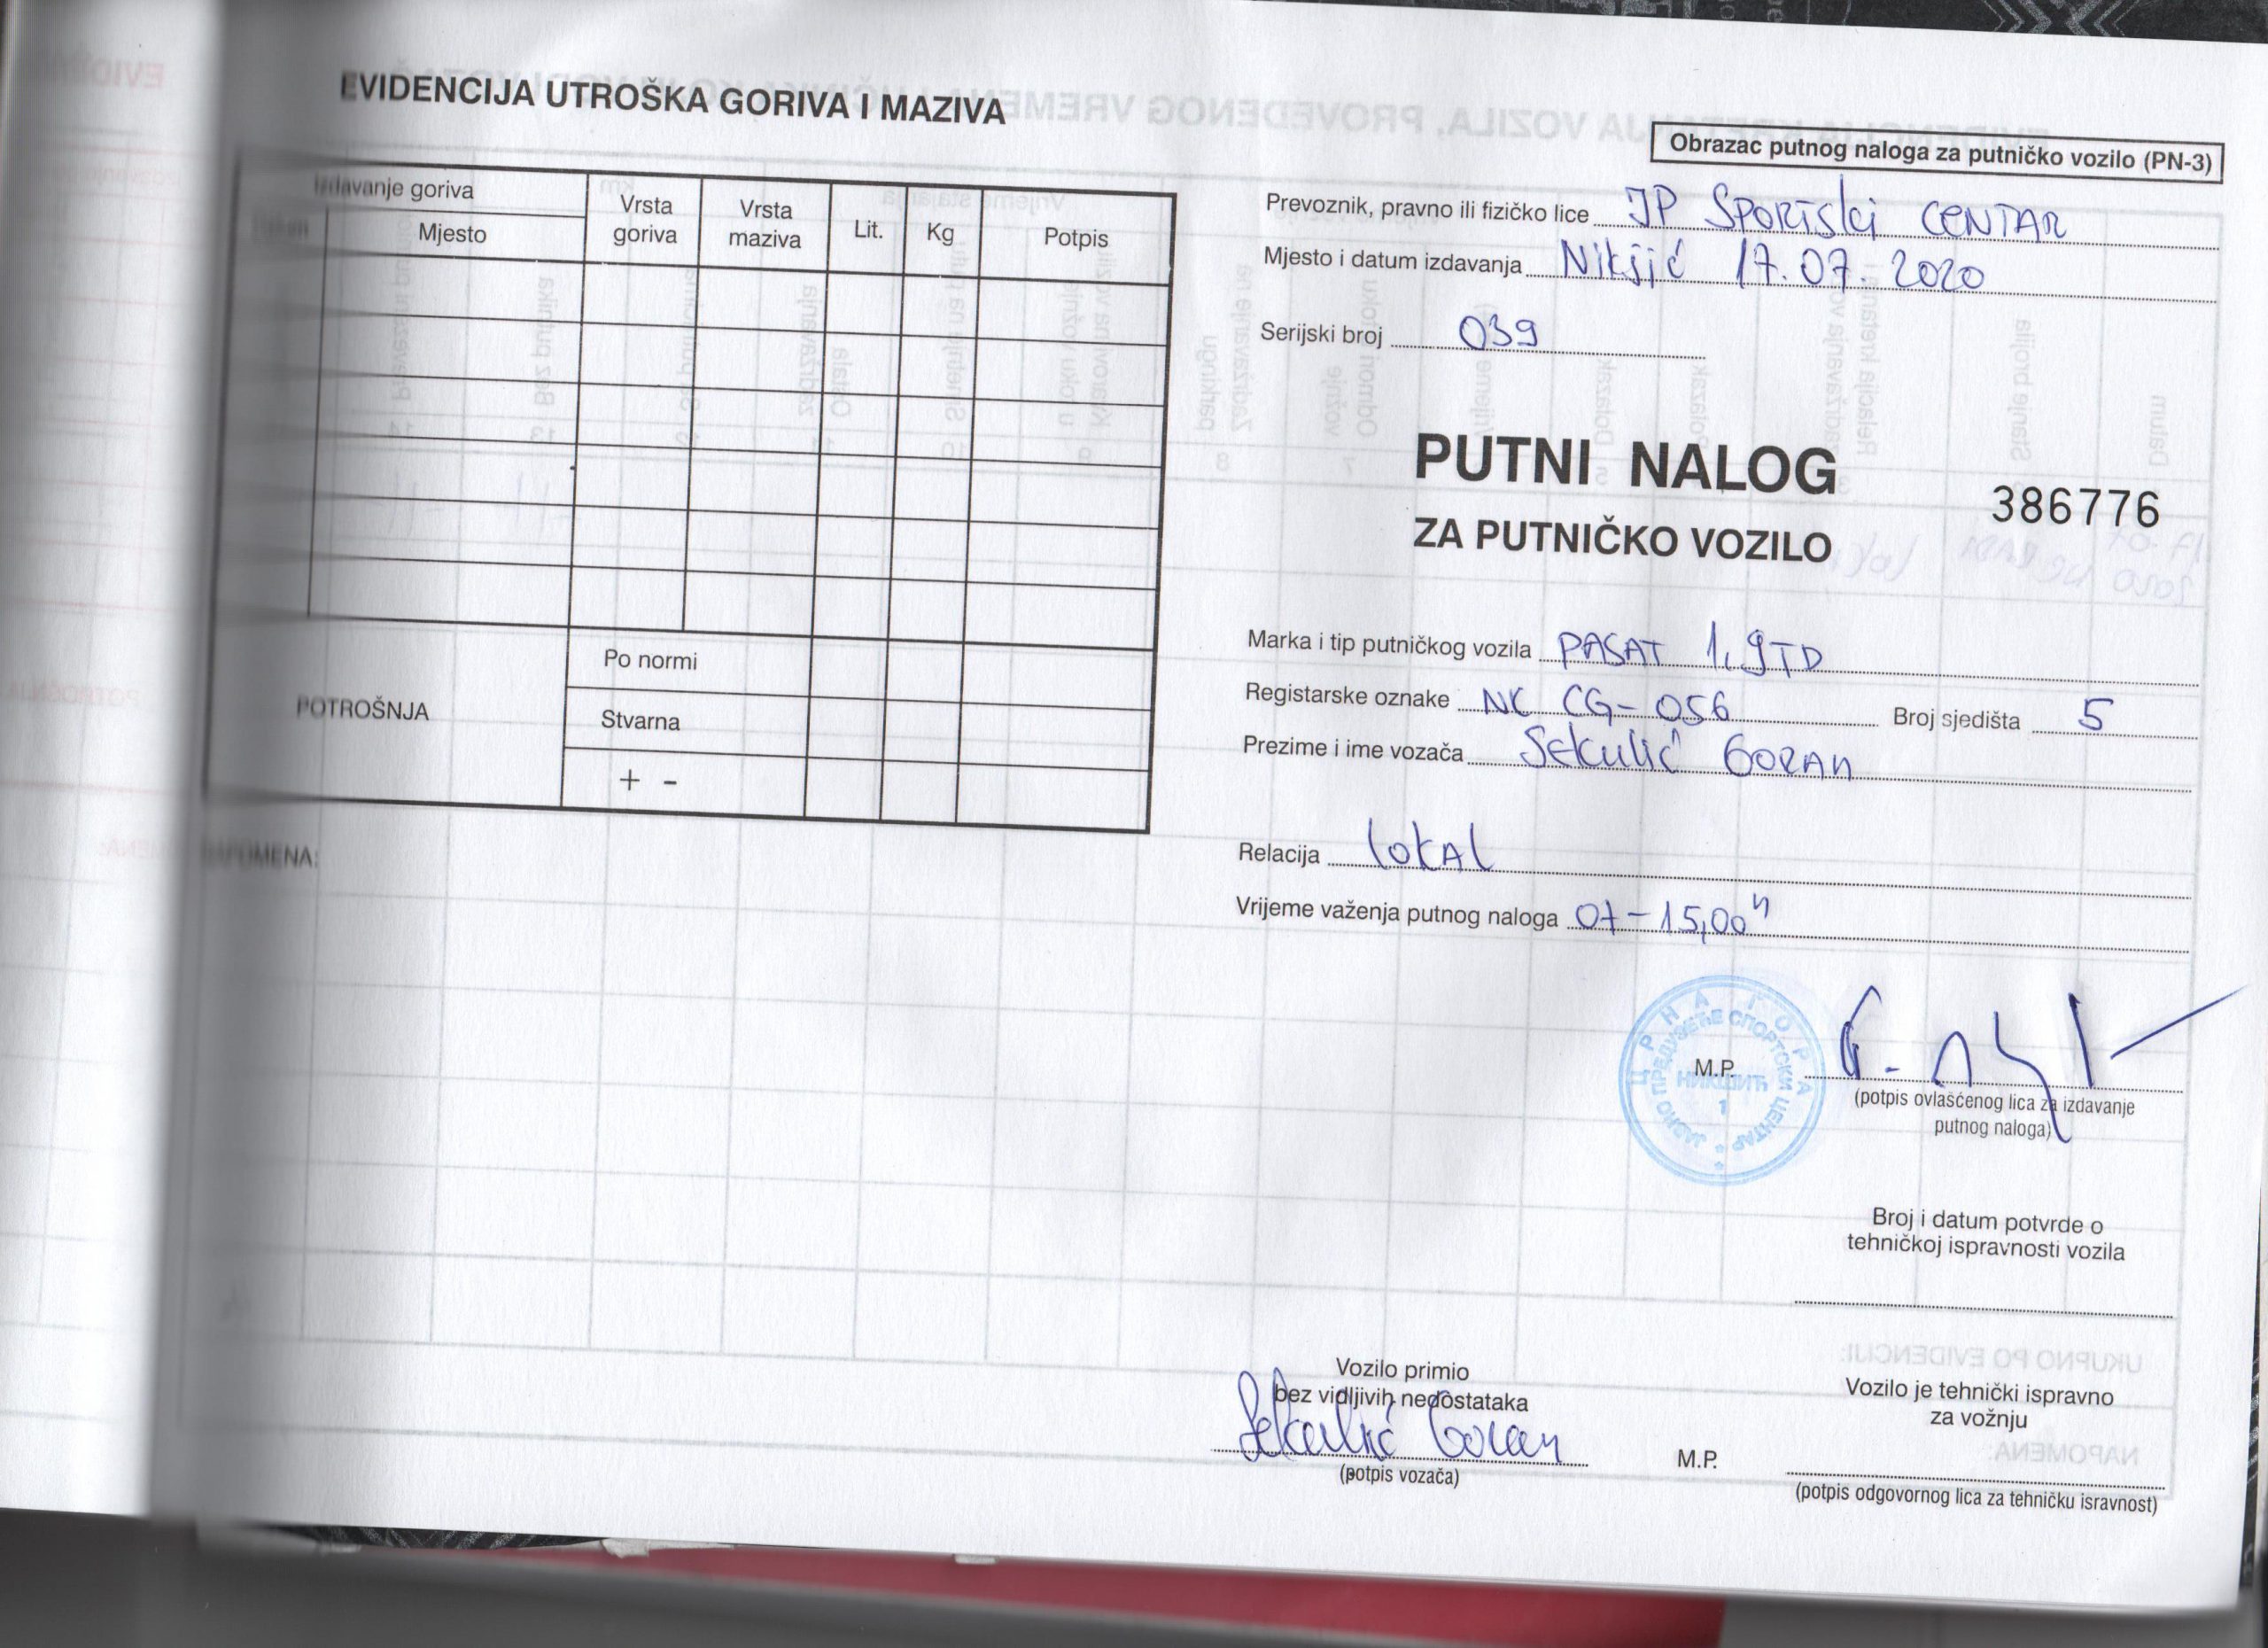 EVIDENCIJA UTROŠKA GORIVA I MAZIVA
Izdavanje goriva
Mjesto
Vrsta goriva
Vrsta maziva
Lit.
Kg
Potpis
POTROŠNJA
Po normi
Stvarna
+ -
NAPOMENA:
Obrazac putnog naloga za putničko vozilo (PN-3)
Prevoznik, pravno ili fizičko lice JP SPORTSKI CENTAR
Mjesto i datum izdavanja Nikšić 17.07.2020
Serijski broj 039
PUTNI NALOG
386776
ZA PUTNIČKO VOZILO
Marka i tip putničkog vozila PASAT 1,9TD
Registarske oznake NK CG-056 Broj sjedišta 5
Prezime i ime vozača Sekulić GORAN
Relacija lokAl
Vrijeme važenja putnog naloga 07-15,00 h
ЦРНА ГОРА
ЈАВНО ПРЕДУЗЕЋЕ СПОРТСКИ ЦЕНТАР
НИКШИЋ
1
M.P.
(potpis ovlašćenog lica za izdavanje
putnog naloga)
Broj i datum potvrde o
tehničkoj ispravnosti vozila
Vozilo primio
bez vidljivih nedostataka
Sekulić Goran
(potpis vozača)
M.P.
Vozilo je tehnički ispravno
za vožnju
(potpis odgovornog lica za tehničku isravnost)